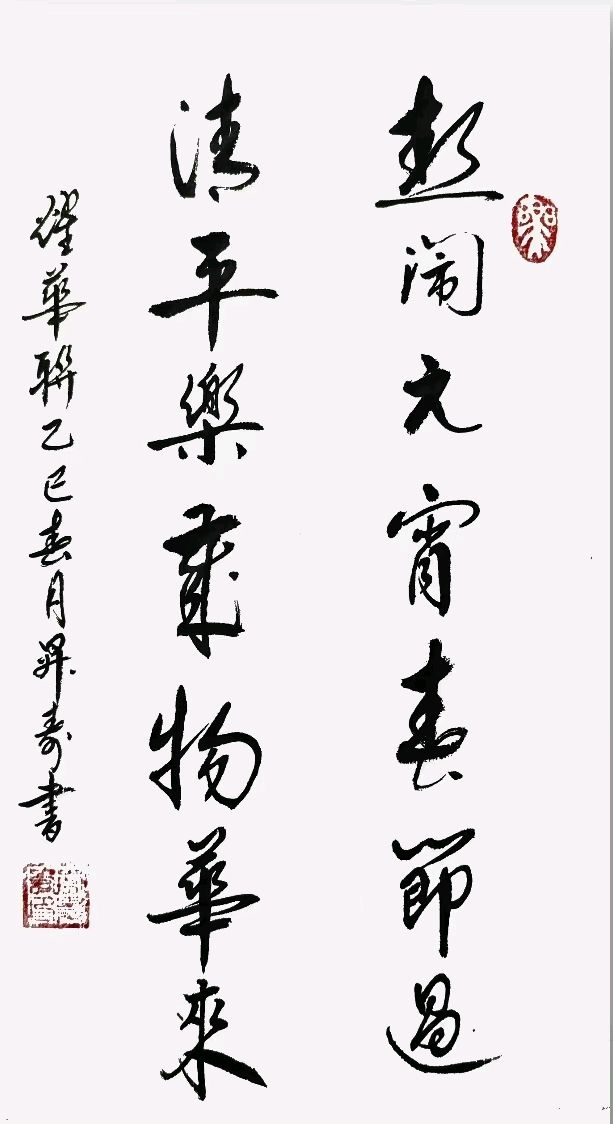 熱闹元宵春節過
清平樂歲物華來
燿華聯乙巳春月昇寿書